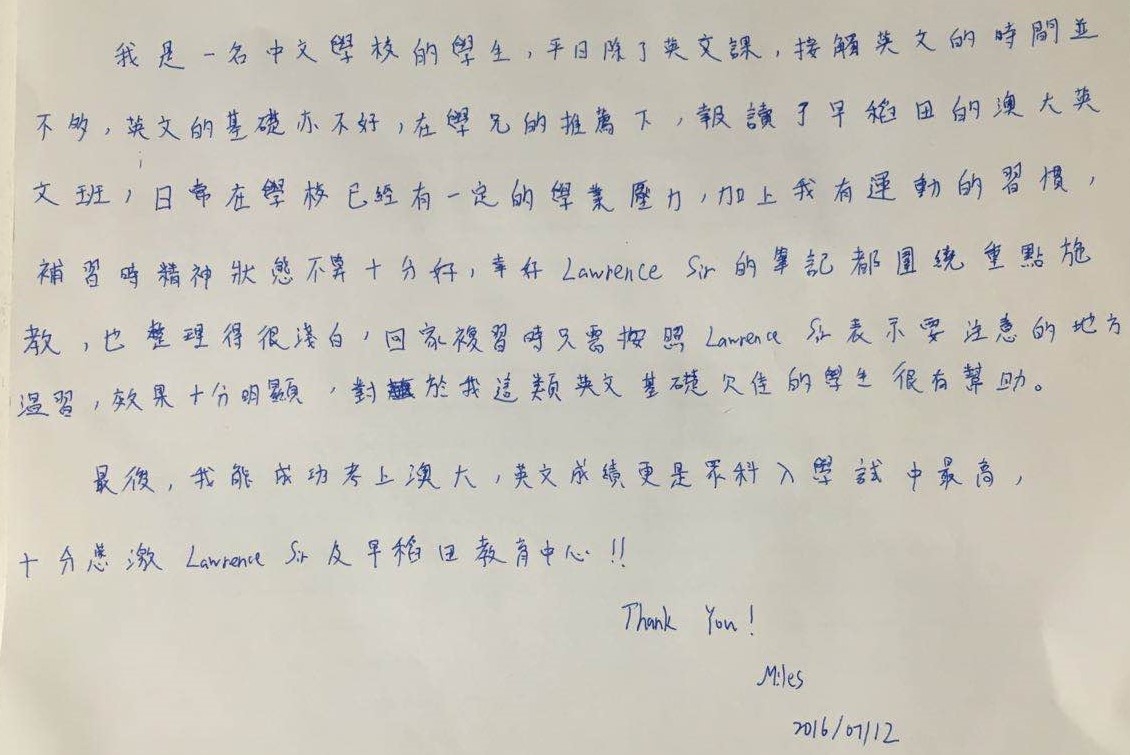 我是一名中文學校的學生，平日除了英文課，接觸英文的時間並
不多，英文的基礎亦不好，在學兄的推薦下，報讀了早稻田的澳大英
文班，日常在學校已經有一定的學業壓力，加上我有運動的習慣，
補習時精神狀態不算十分好，幸好 Lawrence Sir 的筆記都圍繞重點施
教，也整理得很淺白，回家複習時只需按照 Lawrence Sir 表示要注意的地方
溫習，效果十分明顯，對於我這類英文基礎欠佳的學生很有幫助。
最後，我能成功考上澳大，英文成績更是眾科入學試中最高，
十分感激 Lawrence Sir 及早稻田教育中心!!
Thank You!
Miles
2016/07/12